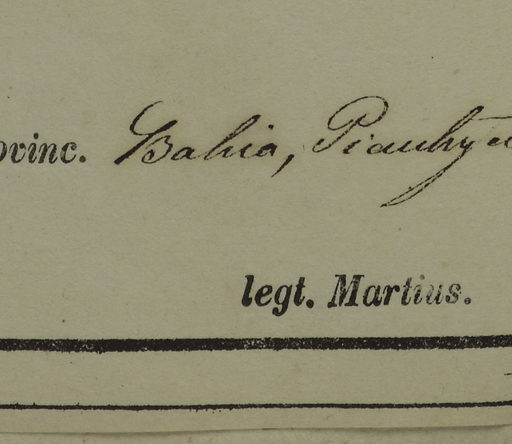 ovinc. Bahia, Piauhy
legt. Martius.